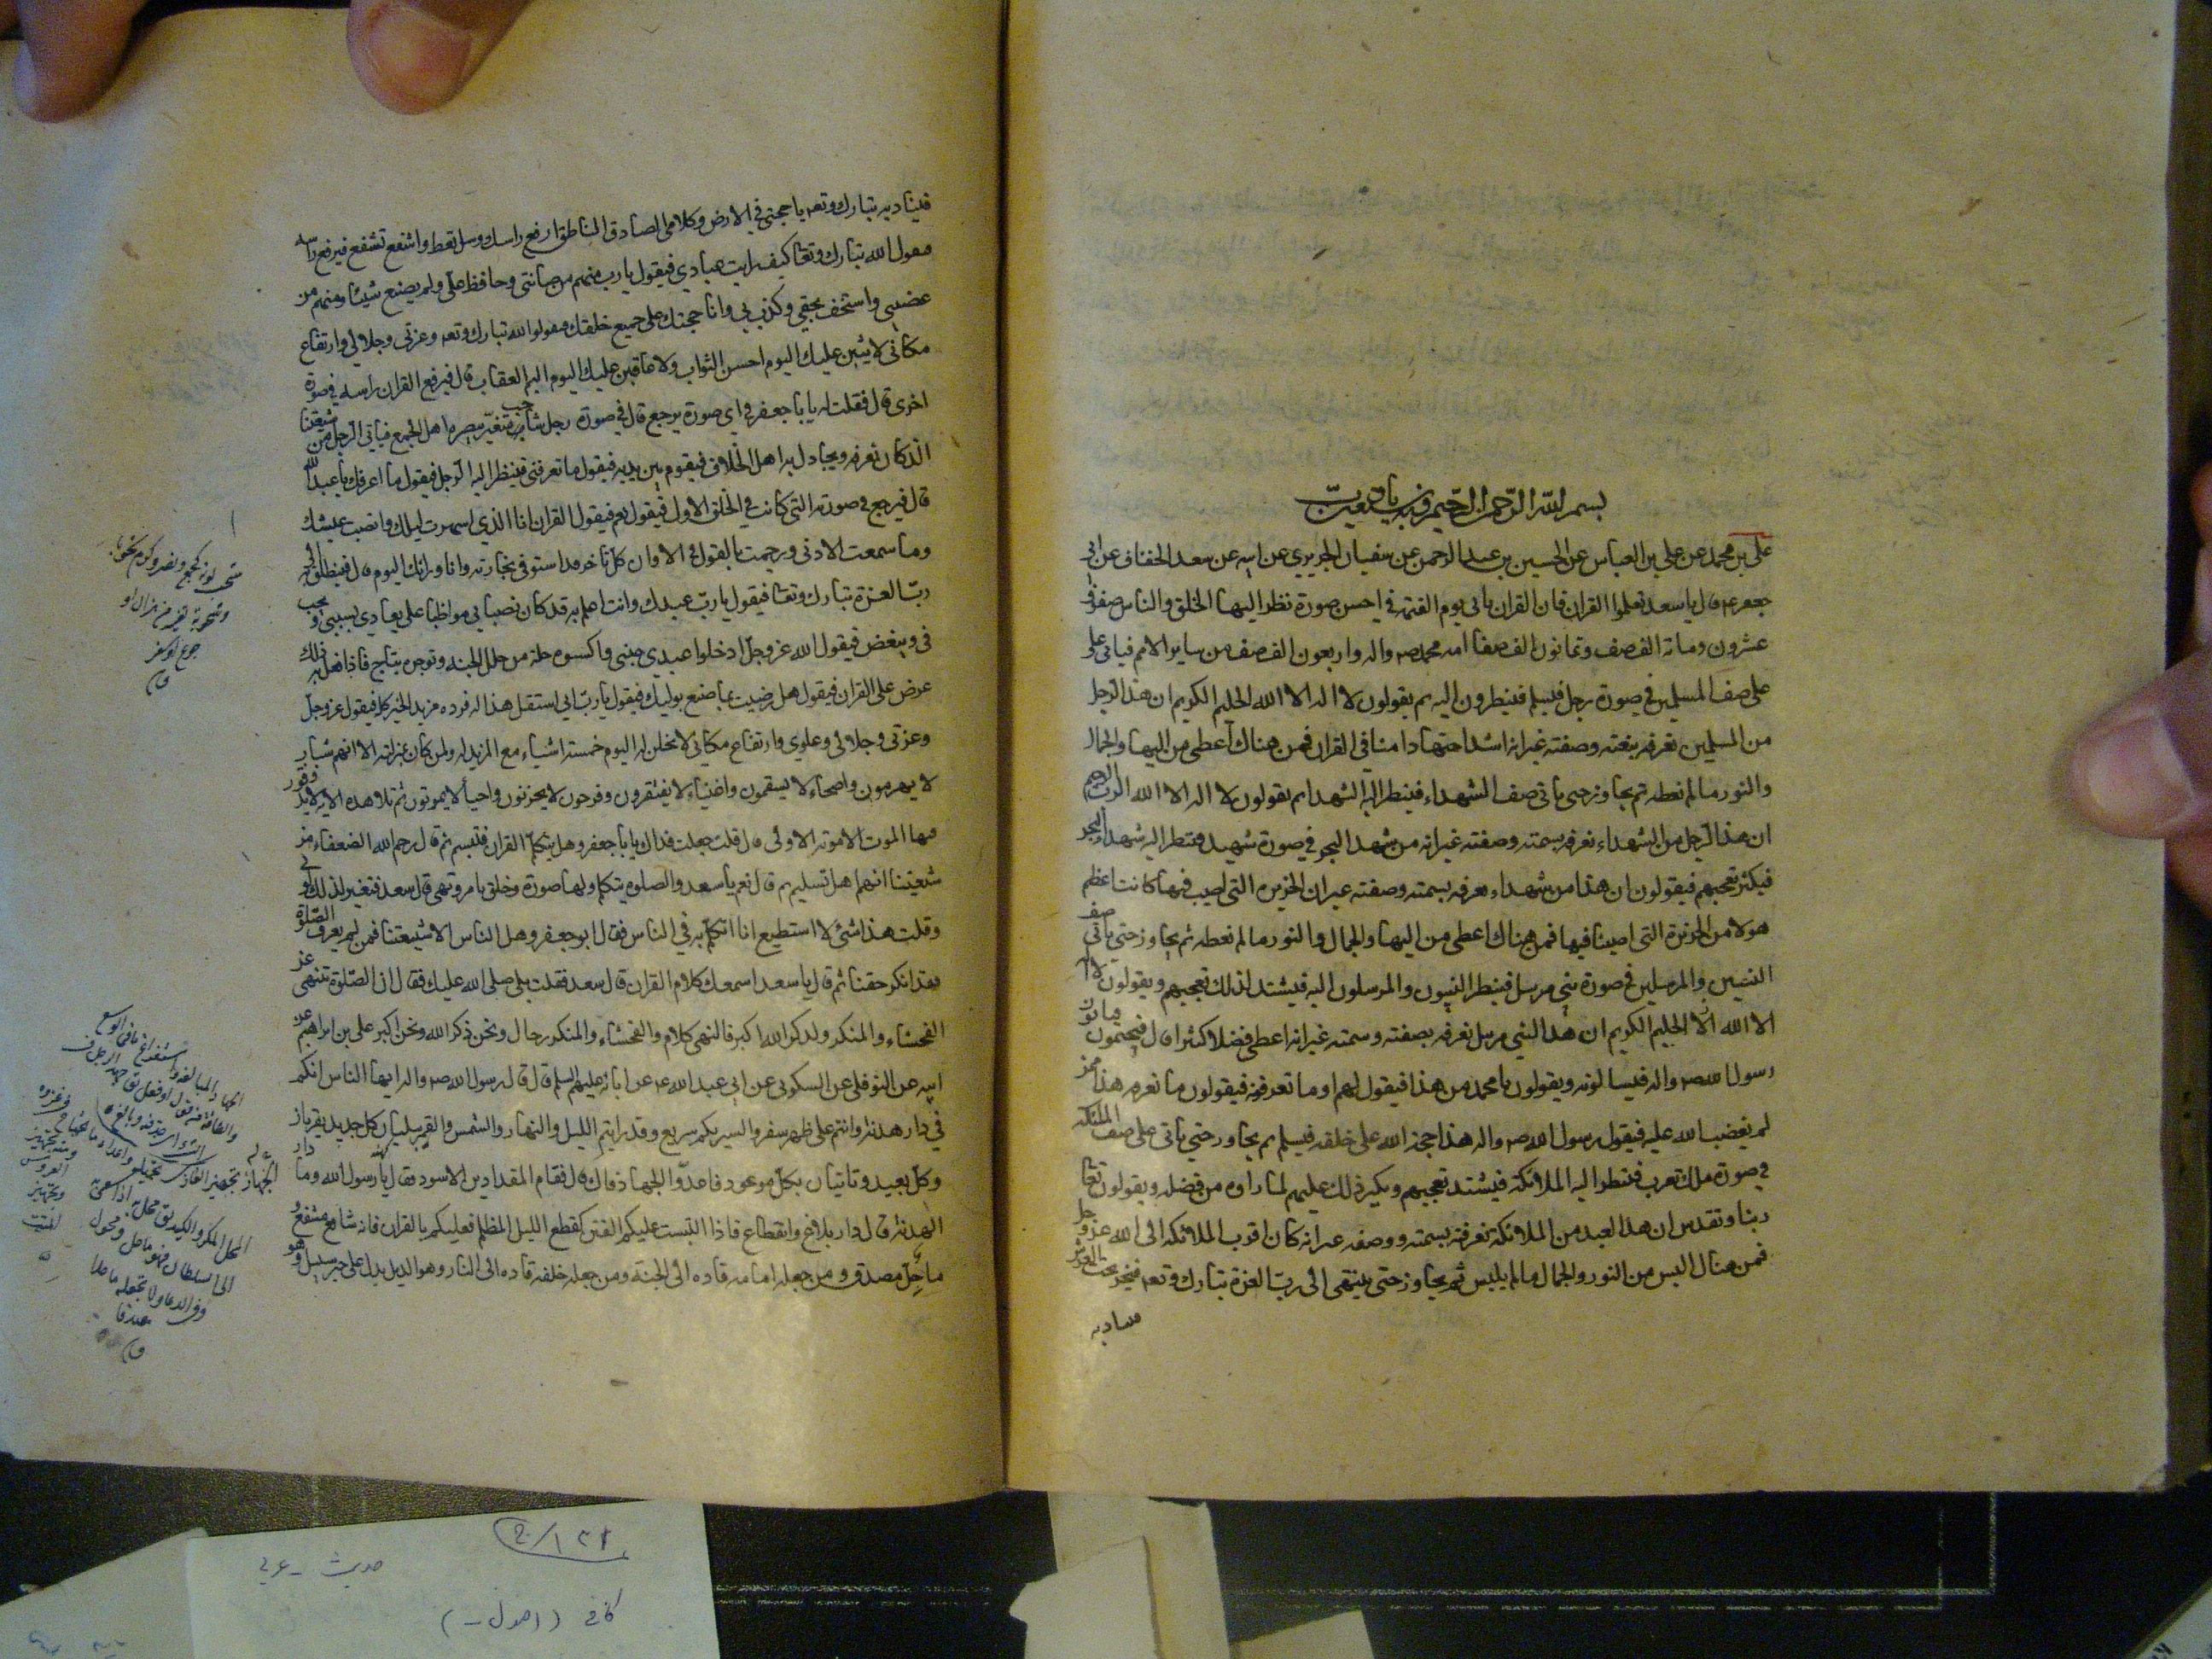 بسم الله الرّحمن الرّحيم وبه
علي بن محمد عن علي بن العباس عن الحسين بن عبد الرحمن عن سفيان الجريري عن ابيه عن سعد الخفاف عن ابي
جعفر ع قال يا سعد تعلموا القران فان القران ياتي يوم القيمة في احسن صورة نظر اليها الخلق والناس صفوف
عشرون ومائة الف صف وثمانون الف صف امة محمد ص واله واربعون الف صف من ساير الامم فياتي على
على صف المسلمين في صورة رجل فيسلم فينظرون اليه ثم يقولون لا اله الا الله الحليم الكريم ان هذا الرجل
من المسلمين نعرفه بنعته وصفته غير انه اشد اجتهادا منا في القران فمن هناك اعطي من البهاء والجمال
والنور ما لم نعطه ثم يجاوز حتى ياتي صف الشهداء فينظر اليه الشهدا ثم يقولون لا اله الا الله الرب الرحيم
ان هذا الرّجل من الشهداء نعرفه بسمته وصفته غير انه من شهدا البحر في صورة شهيد فينظر اليه شهداء البحر
فيكثر تعجبهم فيقولون ان هذا من شهداء نعرفه بسمته وصفته غير ان الجزيرة التي اصيب فيها كانت اعظم
هولا من الجزيرة التي اصبنا فيها فمن هناك اعطي من البهاء والجمال والنور ما لم نعطه ثم يجاوز حتى ياتي صف
النبيين والمرسلين في صورة نبي مرسل فينظر النبيون والمرسلون اليه فيشتد لذلك تعجبهم ويقولون لا اله
الا الله الحليم الكريم ان هذا النبي مرسل نعرفه بصفته وسمته غير انه اعطي فضلا كثيرا قال فيجتمعون فياتون
رسول الله ص واله فيسالونه ويقولون يا محمد من هذا فيقول لهم او ما تعرفونه فيقولون ما نعرفه هذا ممن
لم يغضب الله عليه فيقول رسول الله ص واله هذا حجة الله على خلقه فيسلم ثم يجاوز حتى ياتي على صف الملئكة
في صورة ملك مقرب فينظر اليه الملائكة فيشتد تعجبهم ويكبر ذلك عليهم لما راوه من فضله ويقولون تعالى
ربنا وتقدس ان هذا العبد من الملائكة نعرفه بسمته ووصفه غير انه كان اقرب الملائكة الى الله عز وجل
فمن هناك البس من النور والجمال ما لم يلبس ثم يجاوز حتى ينتهي الى ربّ العزة تبارك وتعه فيخر تحت العرش
فيناديه
فيناديه تبارك وتعه يا حجتي في الارض وكلامي الصادق الناطق ارفع راسك وسل تعط واشفع تشفع فيرفع راسه
فيقول الله تبارك وتعا كيف رايت عبادي فيقول يا رب منهم من صانني وحافظ علي ولم يضيع شيئا ومنهم من
ضيعني واستخف بحقي وكذب بي وانا حجتك على جميع خلقك فيقول الله تبارك وتعه وعزتي وجلالي وارتفاع
مكاني لاثيبن عليك اليوم احسن الثواب ولاعاقبن عليك اليوم اليم العقاب قال فيرفع القران راسه في صورة
اخرى قال فقلت له يا با جعفر في اي صورة يرجع قال في صورة رجل شاحب متغير يبصره اهل الجمع فياتي الرّجل من شيعتنا
الذي كان يعرفه ويجادل به اهل الخلاف فيقوم بين يديه فيقول ما تعرفني فينظر اليه الرّجل فيقول ما اعرفك يا عبد الله
قال فيرجع في صورته التي كانت في الخلق الاول فيقول نعم فيقول القران انا الذي اسهرت ليلك وانصبت عيشك
وما سمعت الاذى ورجمت بالقول في الا وان كل تاجر قد استوفى تجارته وانا وراءك اليوم قال فينطلق به الى
ربّ العزة تبارك وتعا فيقول يا ربّ عبدك وانت اعلم به قد كان نصبا بي مواظبا علي يعادي بسببي ويحب
في ويبغض فيقول الله عز وجل ادخلوا عبدي جنتي واكسوه حلة من حلل الجنة وتوجوه بتاج فاذا فعل به ذلك
عرض على القران فيقول هل رضيت بما صنع بوليك فيقول يا ربّ اني استقل هذا له فزده مزيد الخير كله فيقول عز وجل
وعزتي وجلالي وعلوي وارتفاع مكاني لانحلن له اليوم خمسة اشياء مع المزيد له ولمن كان بمنزلته الا انهم شباب
لا يهرمون واصحاء لا يسقمون واغنياء لا يفتقرون وفرحون لا يحزنون واحياء لا يموتون ثم تلا هذه الاية لا يذوقون
فيها الموت الا الموتة الاولى قال قلت جعلت فداك يا با جعفر وهل يتكلم القران فتبسم ثم قال رحم الله الضعفاء من
شيعتنا انهم اهل تسليم ثم قال نعم يا سعد والصلوة تتكلم ولها صورة وخلق تامر وتنهى قال سعد فتغير لذلك لوني
وقلت هذا شئ لا استطيع انا اتكلم به في الناس فقال ابو جعفر وهل الناس الا شيعتنا فمن لم يعرف الصّلوة
فقد انكر حقنا ثم قال يا سعد اسمعك كلام القران قال سعد فقلت بلى صلى الله عليك فقال ان الصّلوة تنهى عن
الفحشاء والمنكر ولذكر الله اكبر فالنهي كلام والفحشاء والمنكر رجال ونحن ذكر الله ونحن اكبر علي بن ابراهيم عن
ابيه عن النوفلي عن السكوني عن ابي عبد الله ع عن ابائه عليهم السلم قال قال رسول الله ص واله ايها الناس انكم
في دار هدنة وانتم على ظهر سفر والسير بكم سريع وقد رايتم الليل والنهار والشمس والقمر يبليان كل جديد ويقربان
وكل بعيد وياتيان بكل موعود فاعدّوا الجهاز قال فقام المقداد بن الاسود فقال يا رسول الله وما دار
الهدنة قال دار بلاغ وانقطاع فاذا التبست عليكم الفتن كقطع الليل المظلم فعليكم بالقران فانه شافع مشفع و
ماحل مصدق ومن جعله امامه قاده الى الجنة ومن جعله خلفه قاده الى النار وهو الدليل يدل على خير سبيل وهو
۲/۱۳۱
حديث - عربى
كافى (اصول -)